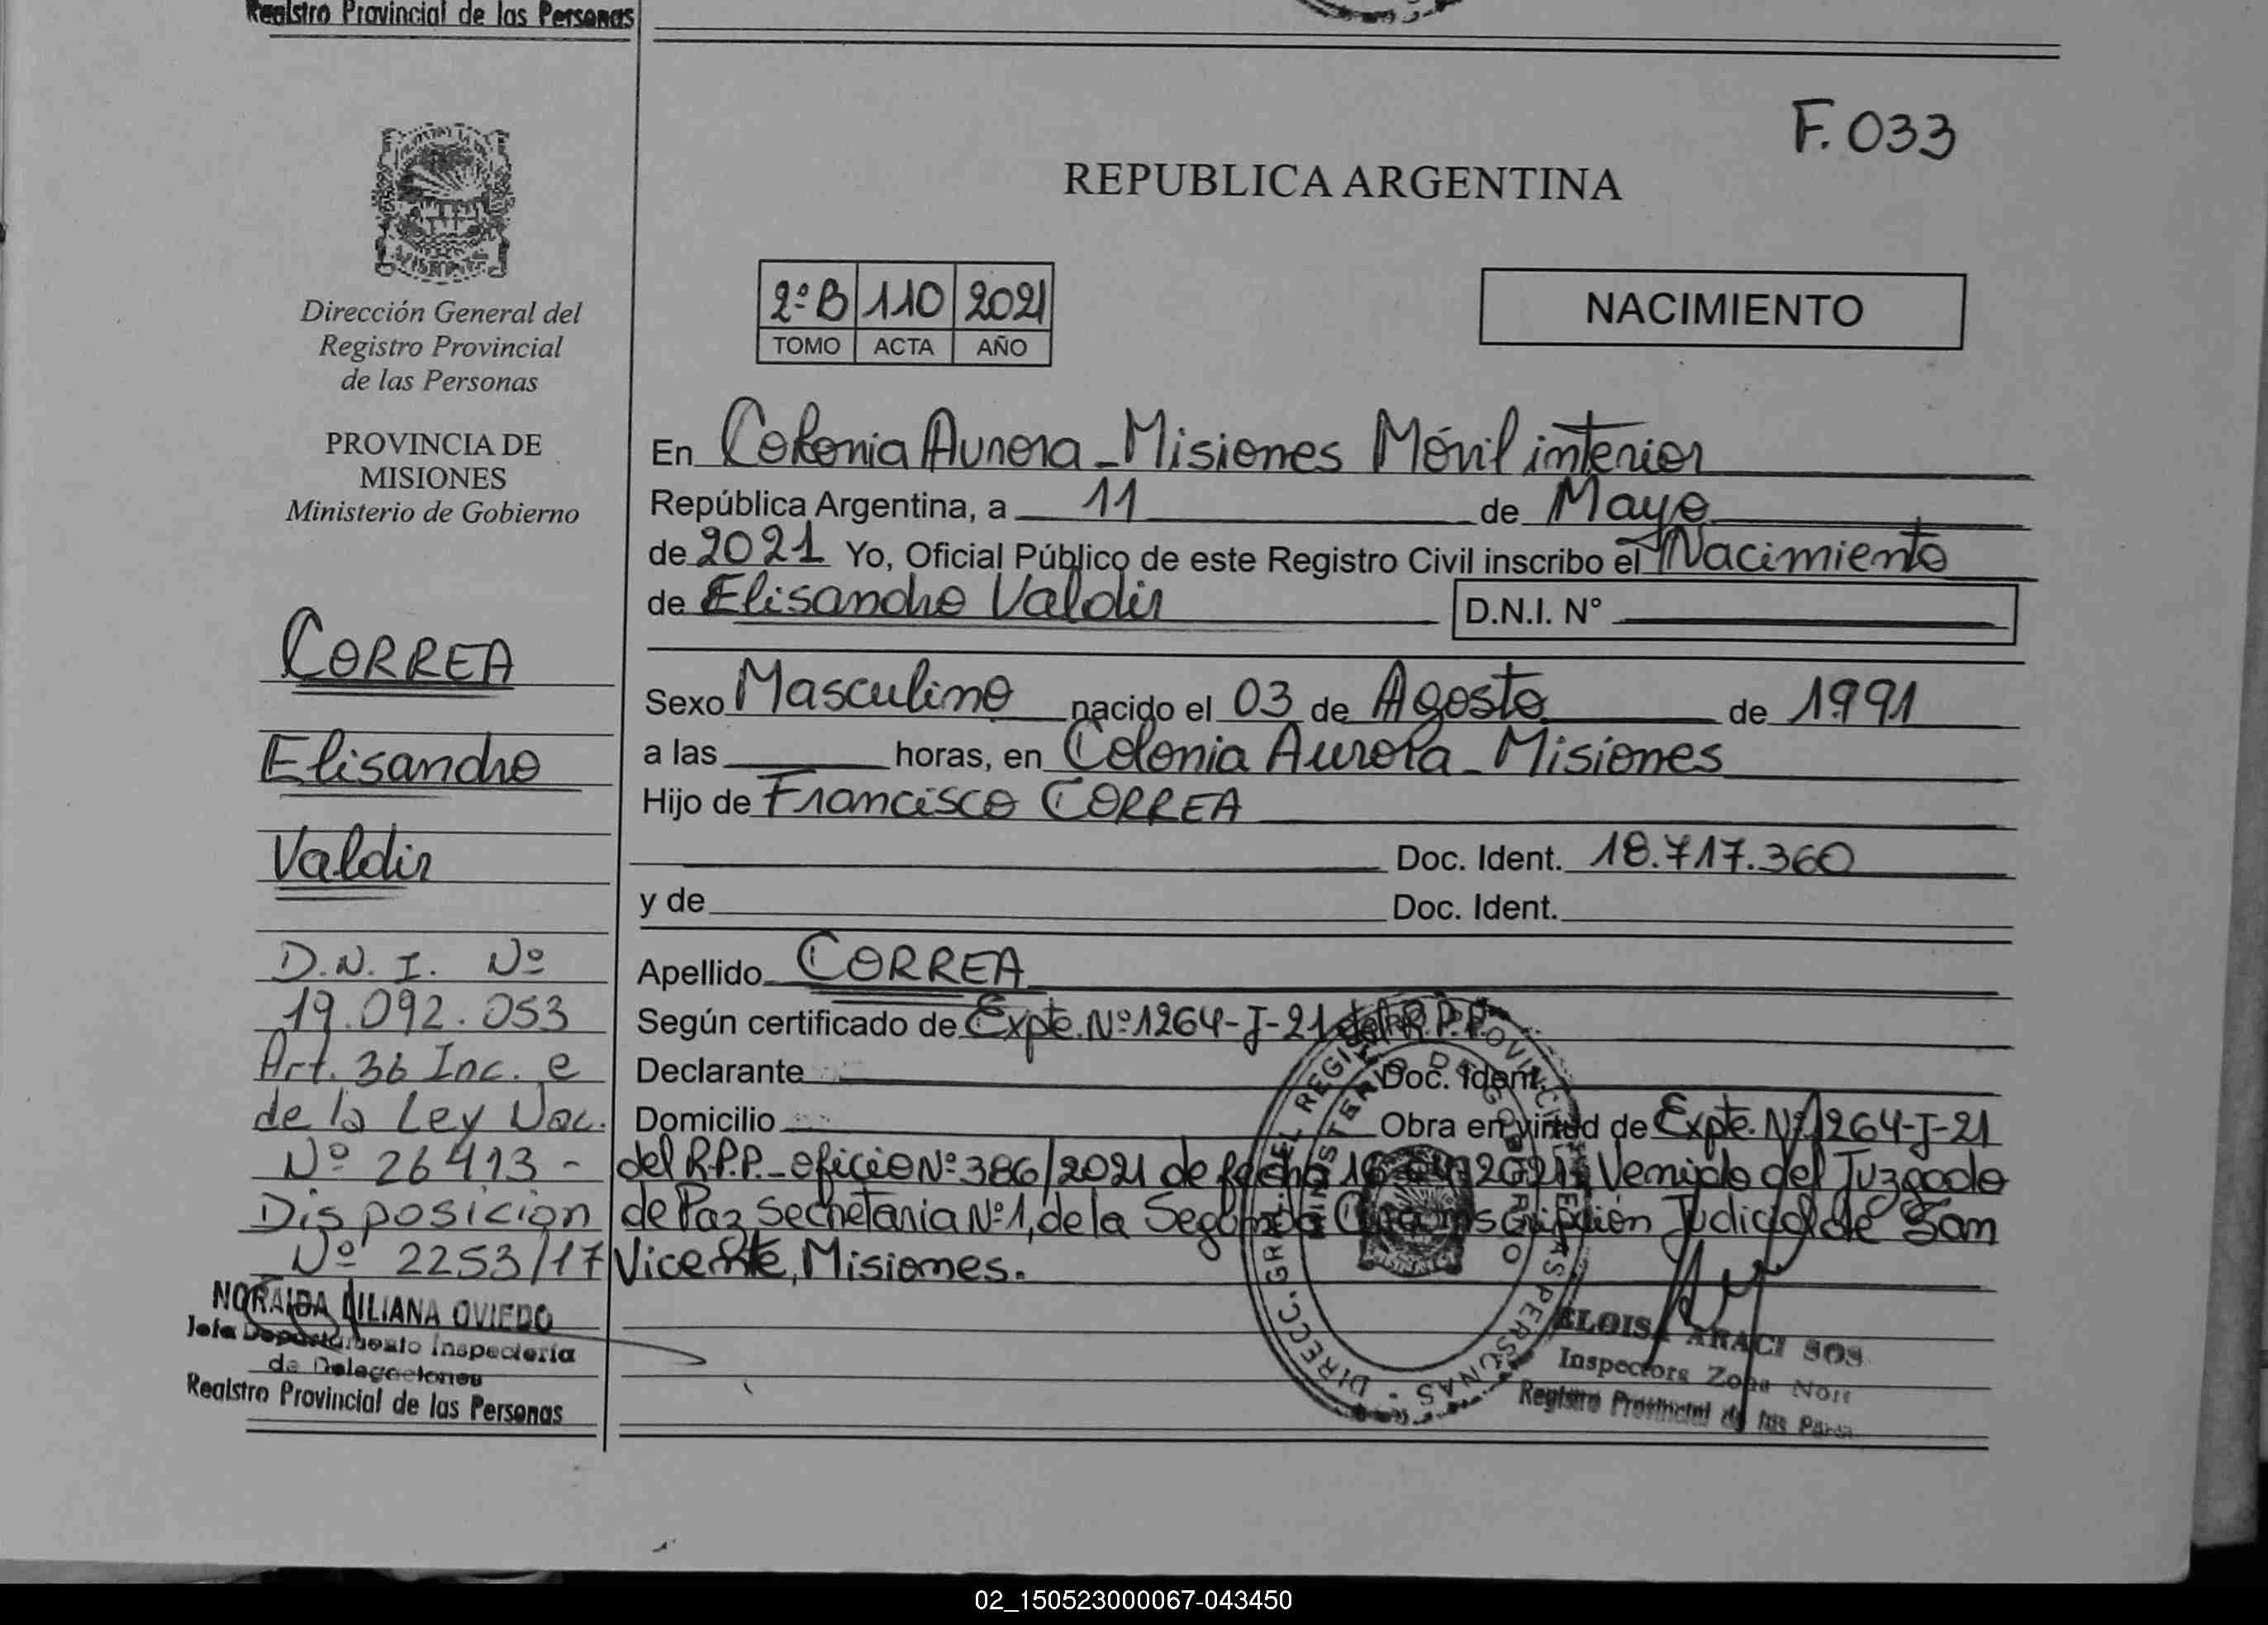 Registro Provincial de las Personas
F. 033
REPUBLICA ARGENTINA
Dirección General del
Registro Provincial
de las Personas
PROVINCIA DE
MISIONES
Ministerio de Gobierno
2º B 110 2021
TOMO ACTA AÑO
NACIMIENTO
En Colonia Aurora - Misiones Móvil interior
República Argentina, a 11 de Mayo
de 2021 Yo, Oficial Público de este Registro Civil inscribo el Nacimiento
de Elisandro Valdir D.N.I. Nº
CORREA
Elisandro
Valdir
Sexo Masculino nacido el 03 de Agosto de 1991
a las horas, en Colonia Aurora - Misiones
Hijo de Francisco CORREA
Doc. Ident. 18.717.360
y de Doc. Ident.
D.N.I. Nº
19.092.053
Art. 36 Inc. e
de la Ley Nac.
Nº 26413 -
Disposicion
Nº 2253/17
Apellido CORREA
Según certificado de Expte. Nº 1264-J-21 del R.P.P.
Declarante Doc. Ident.
Domicilio Obra en virtud de Expte. Nº 1264-J-21
del R.P.P. - oficio Nº 386/2021 de fecha Venido del Juzgado
de Paz Secretaria Nº 1, de la Segunda Circunscripción Judicial de San
Vicente, Misiones.
NORAIDA LILIANA OVIEDO
Jefa Departamento Inspectoria
de Delegaciones
Registro Provincial de las Personas
ARACI SOS
Inspectora Zona Nort
Registro Provincial de las
DIRECC. GRAL. DEL REGISTRO PROVINCIAL DE LAS PERSONAS -
MINISTERIO DE GOBIERNO
02_150523000067-043450